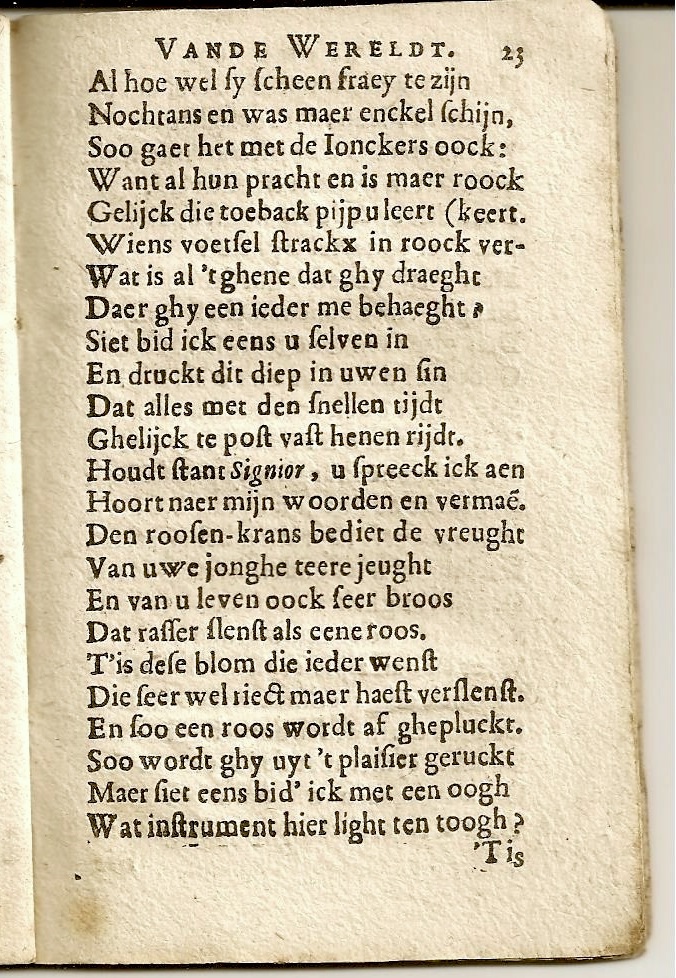 VANDE WERELDT. 23
Al hoe wel ſy ſcheen fraey te zijn
Nochtans en was maer enckel ſchijn,
Soo gaet het met de Ionckers oock:
Want al hun pracht en is maer roock
Gelijck die toeback pijp u leert (keert.
Wiens voetſel ſtrackx in roock ver-
Wat is al 't ghene dat ghy draeght
Daer ghy een ieder me behaeght?
Siet bid ick eens u ſelven in
En druckt dit diep in uwen ſin
Dat alles met den ſnellen tijdt
Ghelijck te poſt vaſt henen rijdt.
Houdt ſtant Signior, u ſpreeck ick aen
Hoort naer mijn woorden en vermaẽ.
Den rooſen-krans bediet de vreught
Van uwe jonghe teere jeught
En van u leven oock ſeer broos
Dat raſſer ſlenſt als eene roos.
T'is deſe blom die ieder wenſt
Die ſeer wel riect maer haeſt verſlenſt.
En ſoo een roos wordt af ghepluckt.
Soo wordt ghy uyt 't plaiſier geruckt
Maer ſiet eens bid' ick met een oogh
Wat inſtrument hier light ten toogh?
'T is